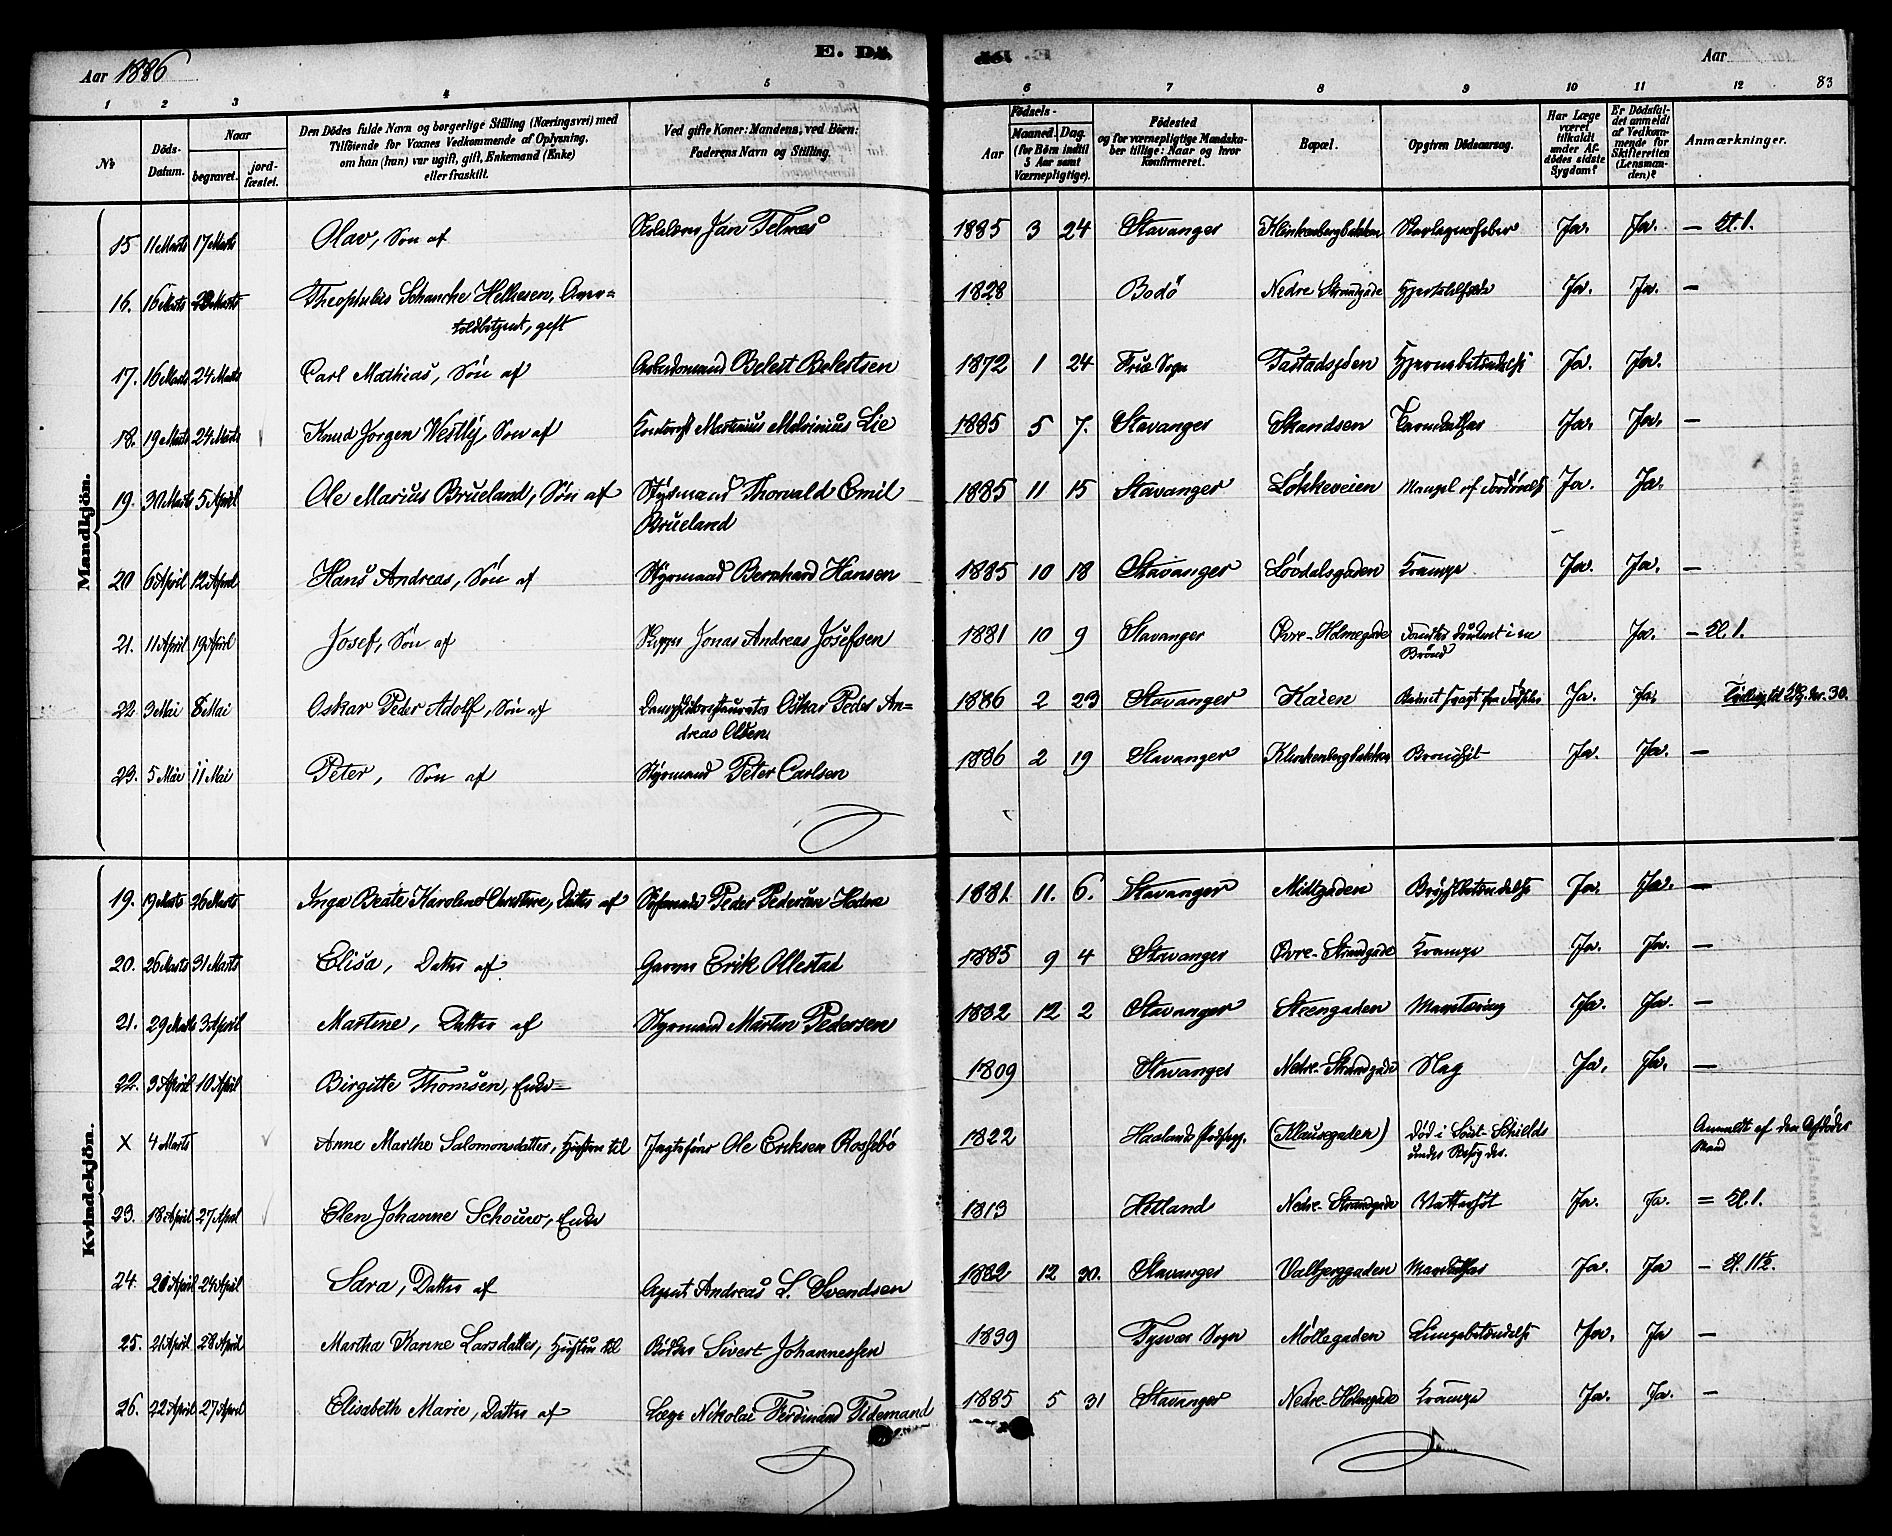 Aar 1886
E. Dö.
Aar
83
1 2 3 4 5 6 7 8 9 10 11 12
No
Döds-Datum.
Naar
begravet.
jord-fæstet.
Den Dödes fulde Navn og borgerlige Stilling (Næringsvei) med
Tilföiende for Voxnes Vedkommende af Oplysning,
om han (hun) var ugift, gift, Enkemand (Enke)
eller fraskilt.
Ved gifte Koner: Mandens, ved Börn:
Faderens Navn og Stilling.
Födsels-
Aar
Maaned.
Dag.
(for Börn indtil
5 Aar samt
Værnepligtige).
Födested
og for værnepligtige Mandska-
ber tillige: Naar og hvor
konfirmeret.
Bopæl.
Opgiven Dödsaarsag.
Har Læge
været
tilkaldt
under Af-
dödes sidste
Sygdom?
Er Dödsfal-
det anmeldt
af Vedkom-
mende for
Skifteretten
(Lensman-
den)?
Anmærkninger.
Mandkjön.
15 11 Marts 17 Marts Olav, Søn af Jan Telnæs 1885 3 24 Stavanger Klinkenbergbakken Skarlagensfeber Ja. Ja. —
16. 16 Marts Schanche Helliesen, gift 1828 Bodö Nedre Strandgade Ja. Ja. —
17. 16 Marts 24 Marts Carl Mathias, Søn af Arbeidsmand Belest Belestsen 1872 1 24 Frue Sogn Hjernebetændelse Ja. Ja.
18. 19 Marts 24 Marts Knud Jørgen Westly, Søn af Lie 1885 5 7. Stavanger Skandsen Ja. Ja. —
19. 30 Marts 5 April Ole Marius Brueland, Søn af Styrmand Thorvald Emil
Brueland 1885 11 15 Stavanger Løkkeveien Mangel af Ja. Ja.
20 6 April 12 April Hans Andreas, Søn af Styrmand Bernhard Hansen 1885 10 18 Stavanger Løvdalsgaden Krampe Ja. Ja. —
21. 11 April 19 April Josef, Søn af Skipper Jonas Andreas Josefsen 1881 10 9 Stavanger Øvre-Holmegade druknet i en
Brønd Ja. —
22 3 Mai 8 Mai Oskar Peder Adolf, Søn af Oskar Peder An=
dreas Olsen 1886 2 23 Stavanger Kaien Ja. Ja. 30.
23. 5 Mai 11 Mai Peter, Søn af Styrmand Peter Carlsen 1886 2 19 Stavanger Klinkenbergbakken Ja. Ja. —
Kvindekjön.
19. 19 Marts 26 Marts Inga Beate Karoline Christine, Datter af Peder Pedersen 1881. 11. 6. Stavanger Brystbetændelse Ja. Ja. —
20. 26 Marts 31 Marts Elisa, Datter af Garver Erik Ollestad 1885 9 4 Stavanger Øvre-Strandgade Krampe Ja. Ja. —
21. 29 Marts 3 April Martine, Datter af Styrmand Martin Pedersen 1882 12 2 Stavanger Strengaden Ja. Ja. —
22. 3 April 10 April Birgitte Thomsen, Enke 1809 Stavanger Nedre-Strandgade Slag Ja. Ja. —
X 4 Marts Anne Marthe Salomonsdatter, Hustru til Jagtefører Ole Eriksen Rossebø 1822 (Klausegaden) død i
under Anmeldt af den Afdødes
Mand
23. 18 April 27 April Elen Johanne Enke 1813 Hetland Nedre-Strandgade Vattersot Ja. Ja. =
24. 20 April 24 April Sara, Datter af Agent Andreas S. Svendsen 1882 12 30. Stavanger Valbjerggaden Ja. Ja —
25. 21 April 28 April Martha Karine Larsdatter, Hustru til Bødker Sivert Johannessen 1839 Tysvær Sogn Møllegaden Lungebetændelse Ja. Ja —
26. 22 April 27 April Elisabeth Marie, Datter af Læge Nikolai Ferdinand Tidemand 1885 5 31 Stavanger Nedre-Holmegade Krampe Ja. Ja. —